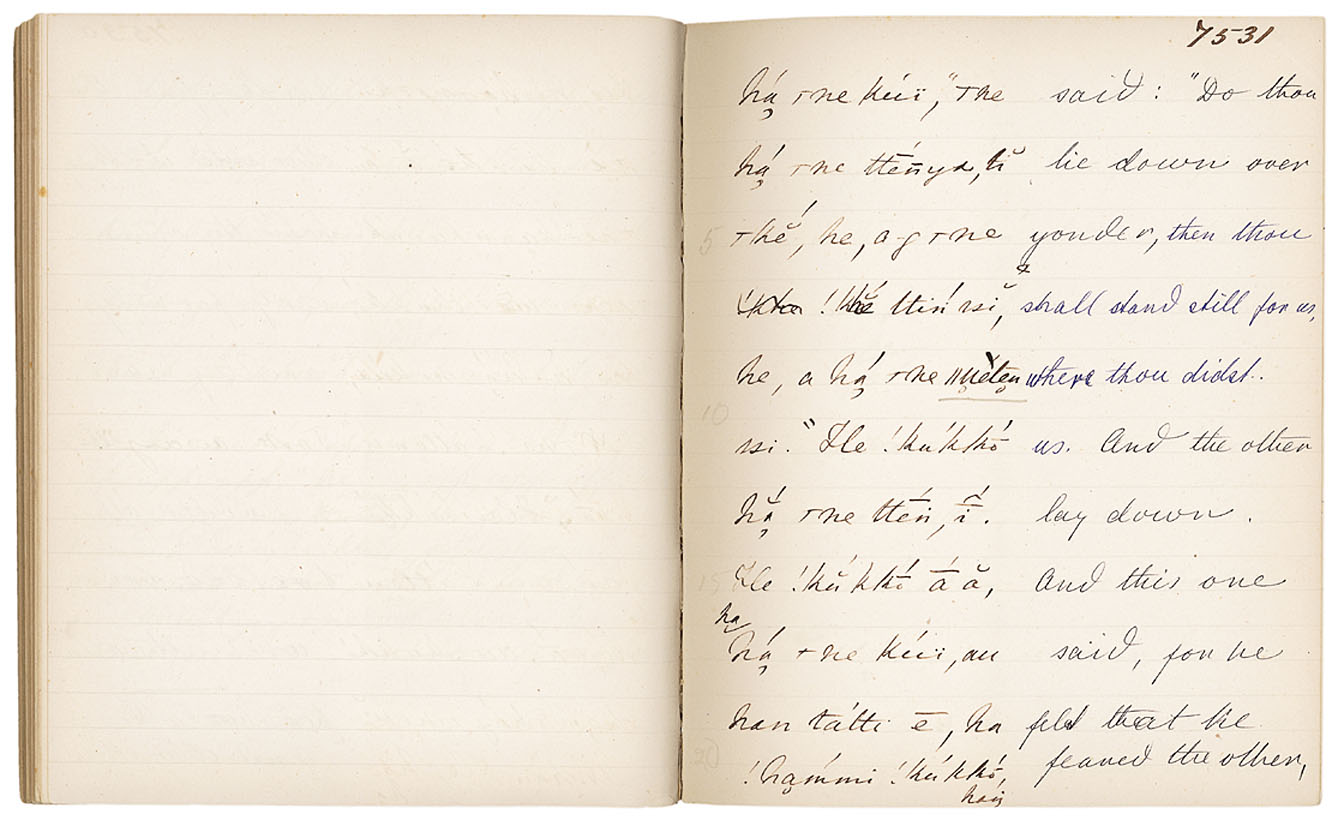 7531
há̤ ⊤ne kúï," ⊤he said : "Do thou
há̤ ⊤ne ttényа, ti̇̆ lie down over
5 ⊤kĕ́, he, a-g ⊤ne yonder, then thou
ttiń ssĭ, shall stand still for us,
he, a há̤ ⊤ne where thou didst.
10 ssi." Ile !kúkkṓ us. And the other
hắ̤ ⊤ne ttḗn, ī́. lay down.
15 Ile !kŭ́kkṓ ā́ ă, And this one
ha̤
há̤ ⊤ne kúï, au said, for he
han tátti ē, ha felt that he
20 !ha̤ḿmi !kúkkō, feared the other,